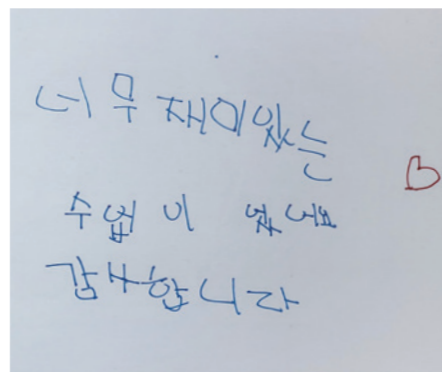 너무 재미있는
수업이 었어요
감사합니다